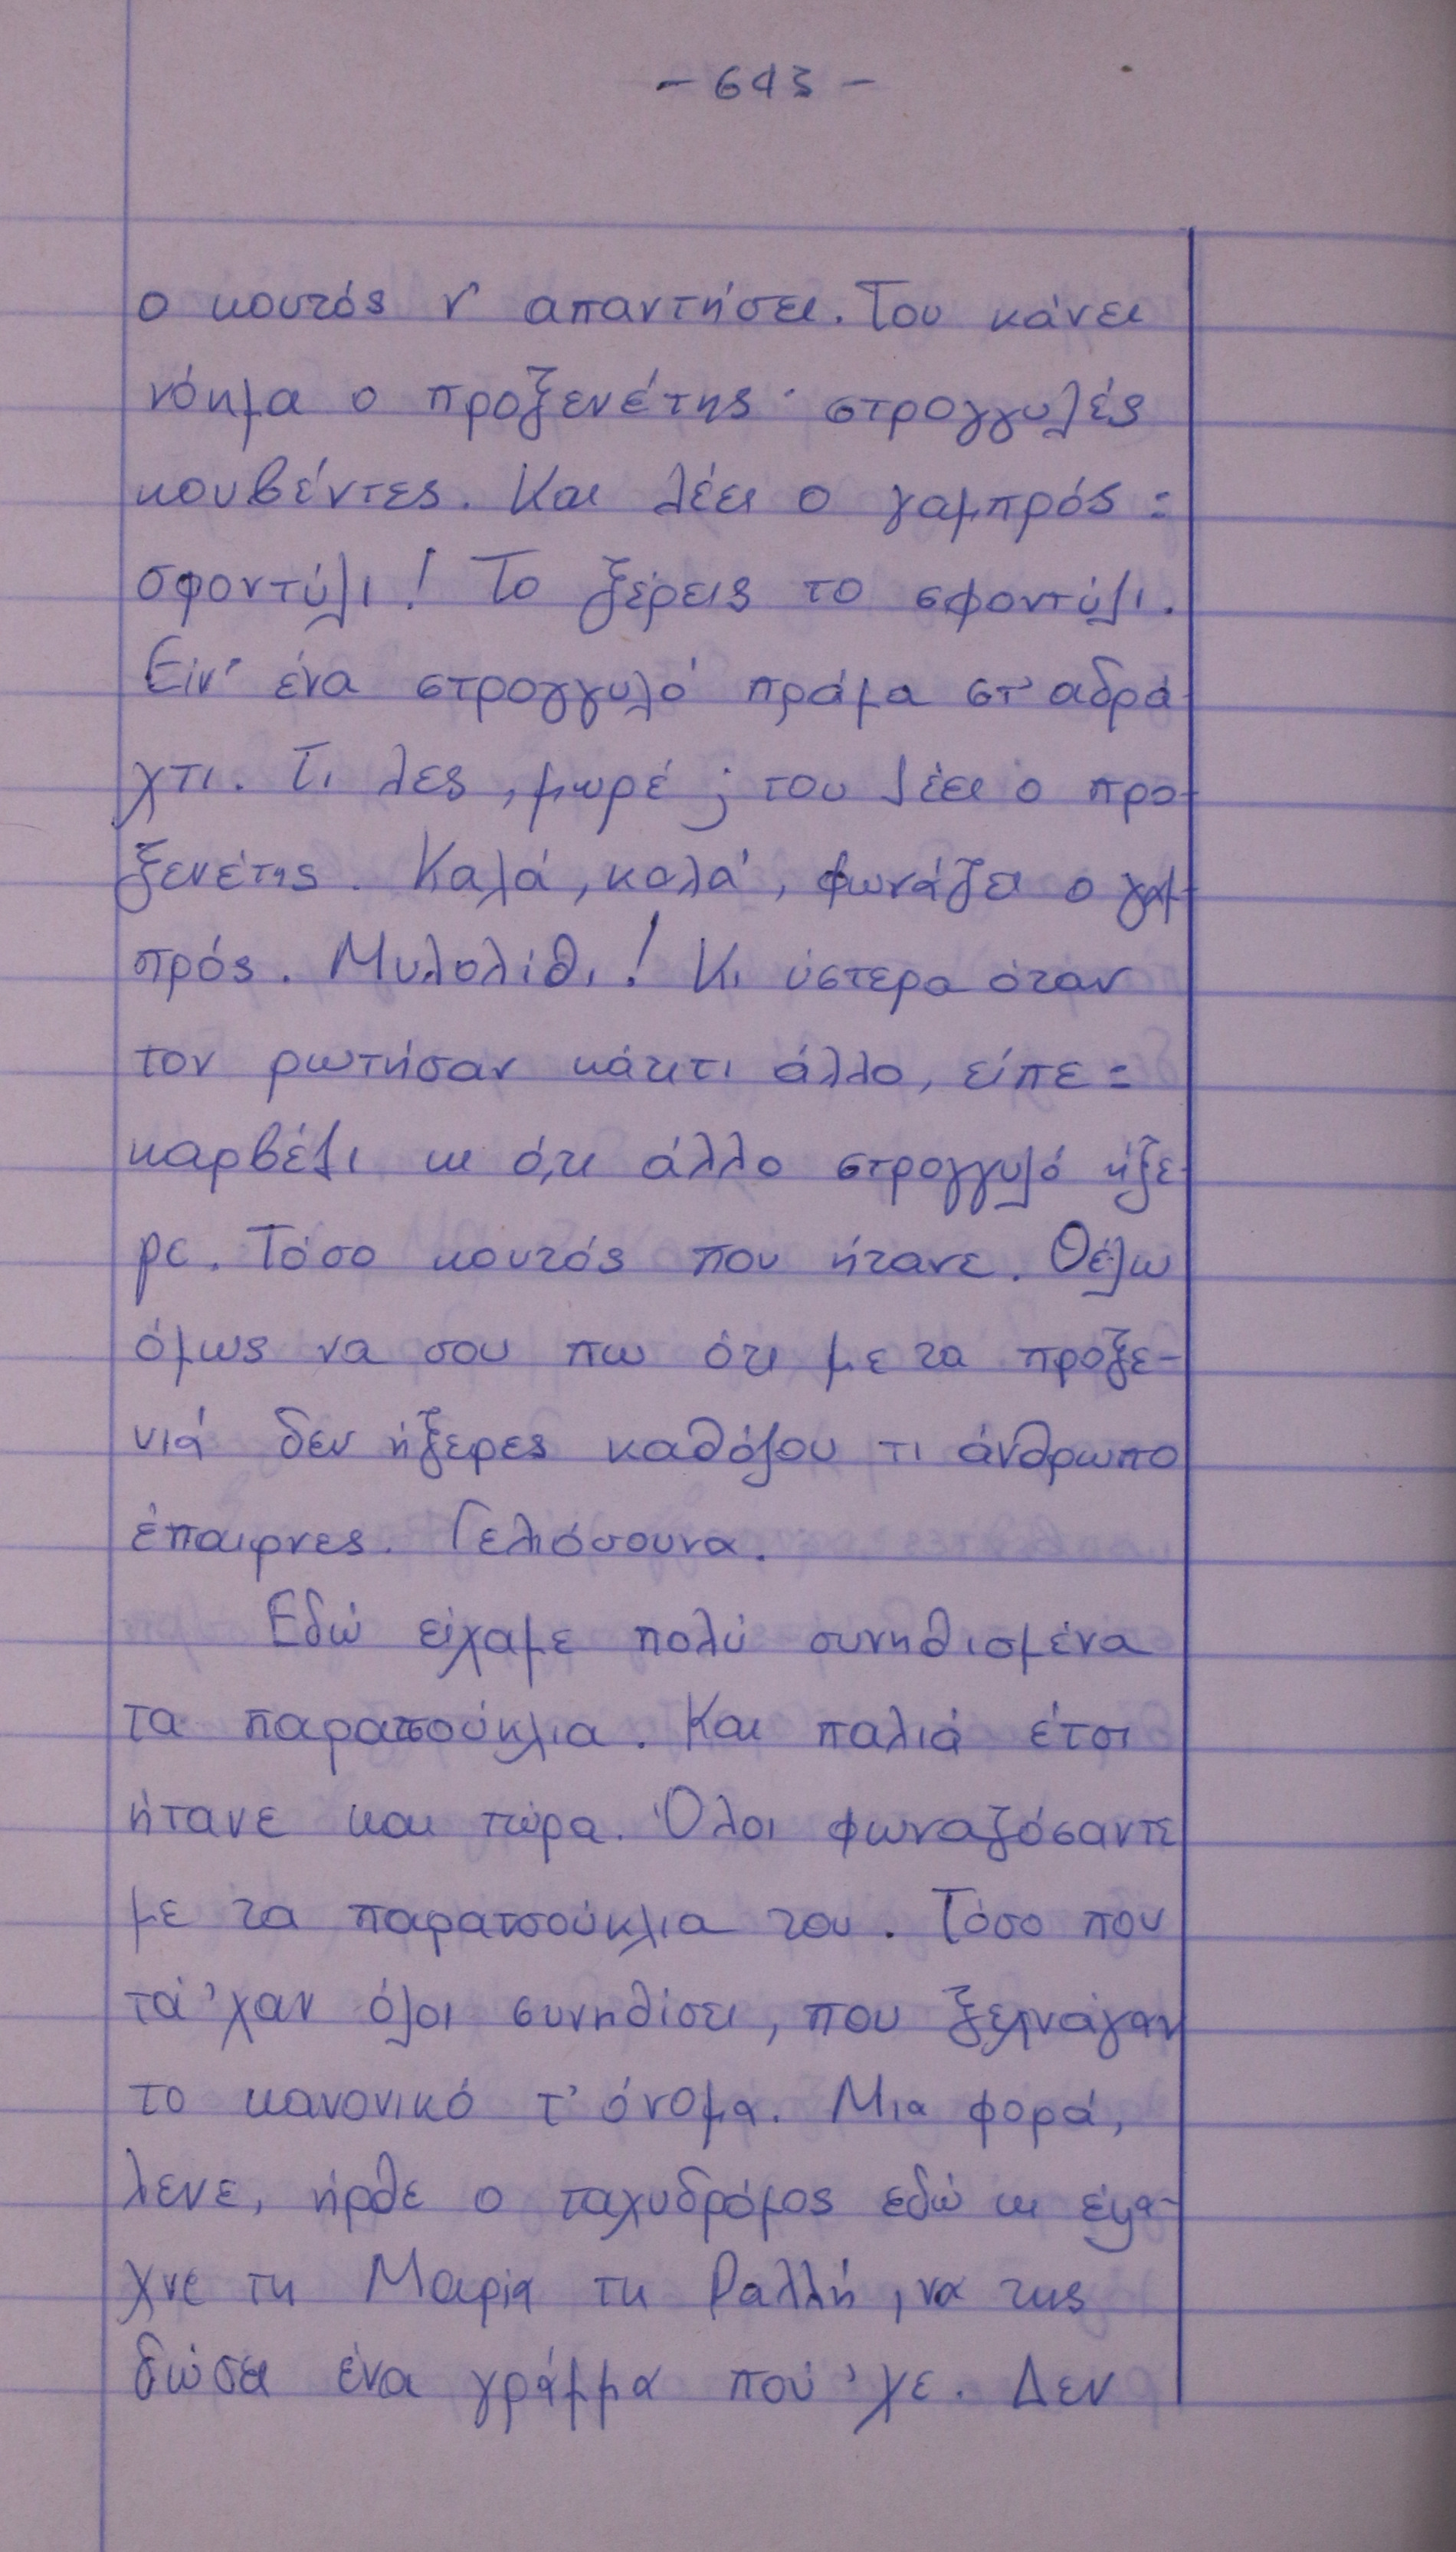 - 643 -
ο κουτός ν' απαντήσει. Του κάνει
νόημα ο προξενέτης· στρογγυλές
κουβέντες. Και λέει ο γαμπρός:
σφοντύλι! Το ξέρεις το σφοντύλι.
Είν' ένα στρογγυλό πράμα στ' αδρά-
χτι. Τι λες, μωρέ; του λέει ο προ-
ξενέτης. Καλά, καλά, φωνάζει ο γαμ-
πρός. Μυλολίθι! Κι ύστερα όταν
τον ρωτήσαν κάτι άλλο, είπε:
καρβέλι κι ό,τι άλλο στρογγυλό ήξε-
ρε. Τόσο κουτός που ήτανε. Θέλω
όμως να σου πω ότι με τα προξε-
νιά δεν ήξερες καθόλου τι άνθρωπο
έπαιρνες. Γελιόσουνα.
Εδώ είχαμε πολύ συνηθισμένα
τα παρατσούκλια. Και παλιά έτσι
ήτανε και τώρα. Όλοι φωναζόσαντε
με τα παρατσούκλια του. Τόσο που
τά 'χαν όλοι συνηθίσει, που ξεχνάγαν
το κανονικό τ' όνομα. Μια φορά,
λένε, ήρθε ο ταχυδρόμος εδώ κι έψα-
χνε τη Μαρία τη Ραλλή, να της
δώσει ένα γράμμα πού 'χε. Δεν